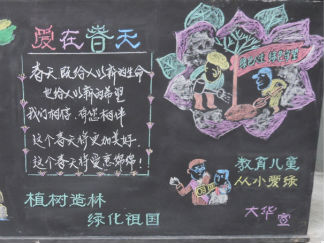 爱在春天
春天既给人以新的生命
也给人以新的希望
我们相信 有您相伴
这个春天将更加美好
这个春天将爱意绵绵!
植树造林
绿化祖国
教育儿童
从小爱绿
大华宫